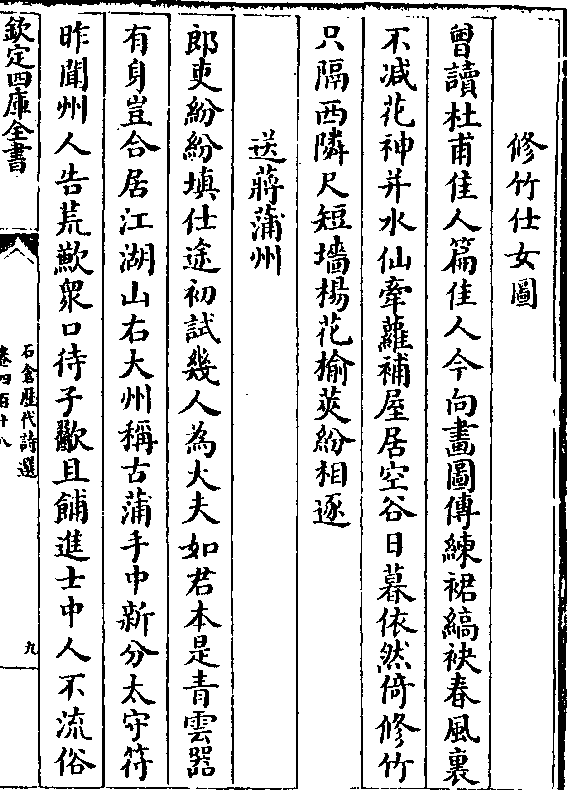 修竹仕女圖
曽讀杜甫佳人篇佳人今向畫圖傳練裙縞袂春風裏
不减花神并水仙牽蘿補屋居空谷日暮依然倚修竹
只隔西隣尺短墻楊花榆莢紛相逐
送蔣蒲州
郎吏紛紛填仕途初試幾人為大夫如君本是青雲器
有身豈合居江湖山右大州稱古蒲手中新分太守符
昨聞州人告荒歉衆口待子歠且餔進士中人不流俗
欽定四庫全書
石倉歴代詩選
卷四百十八
九